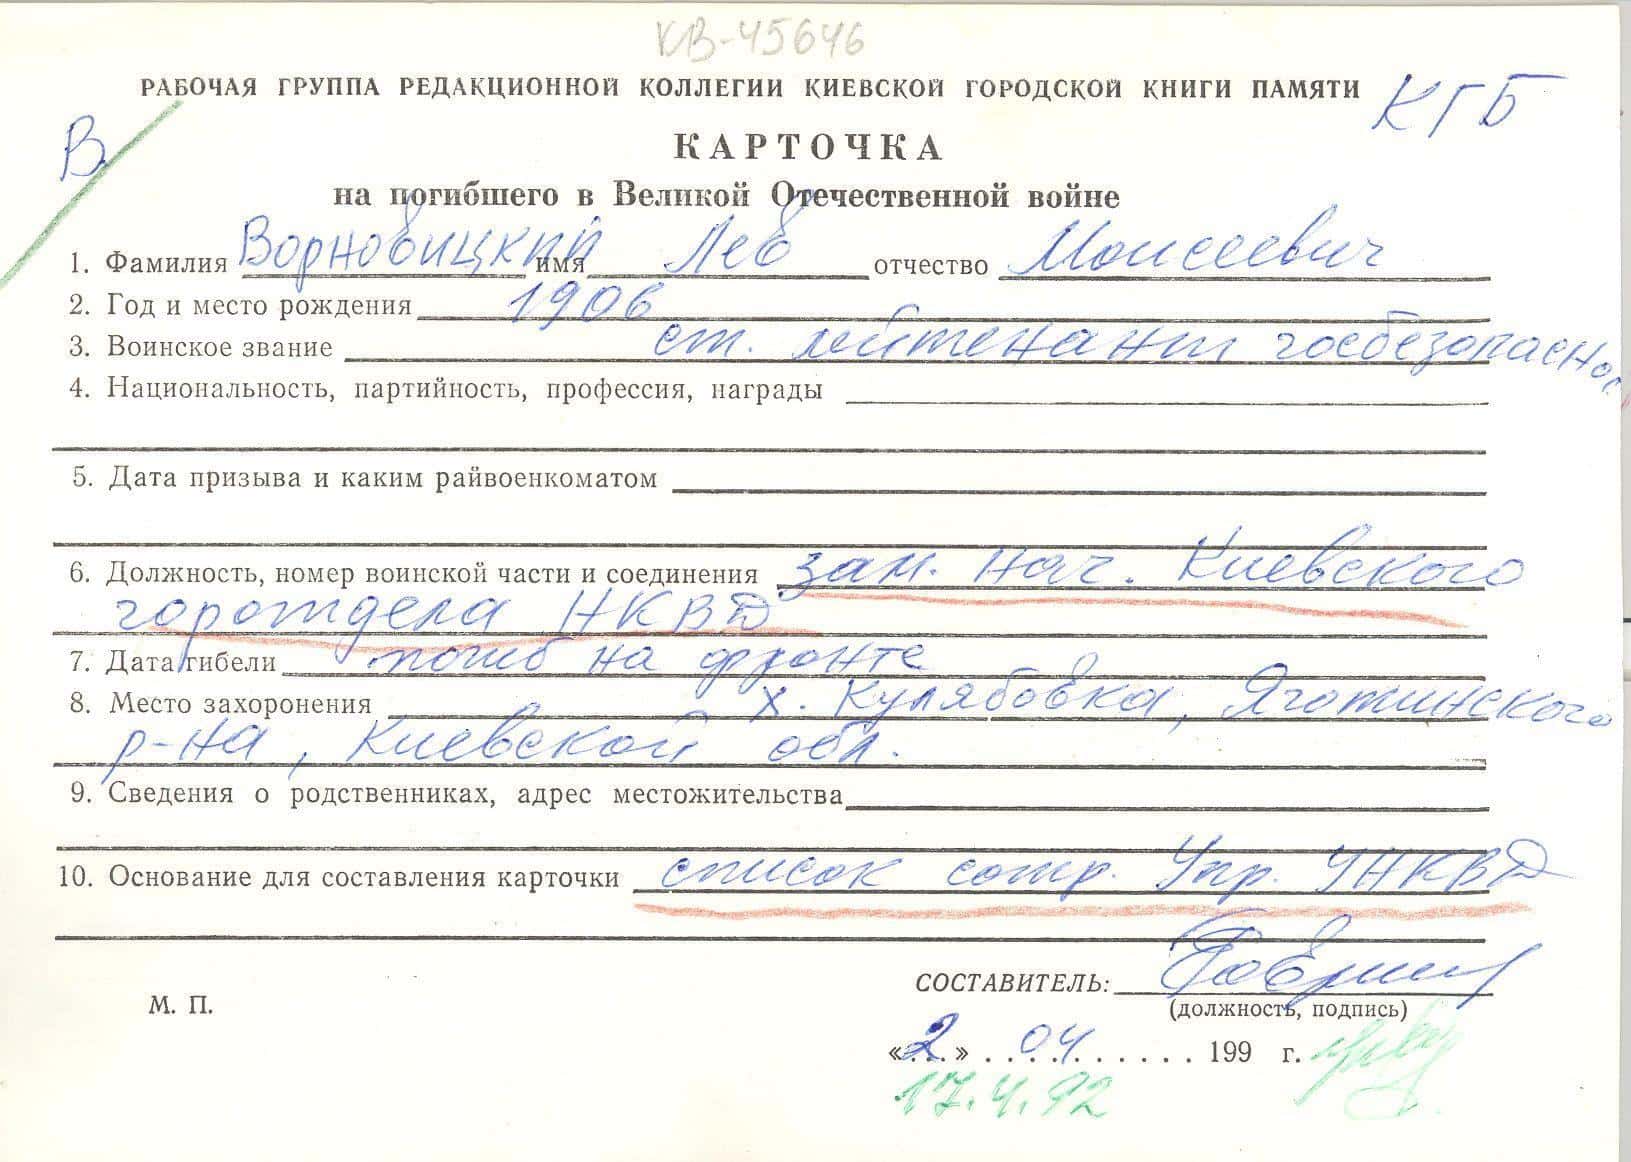 КВ-45646
РАБОЧАЯ ГРУППА РЕДАКЦИОННОЙ КОЛЛЕГИИ КИЕВСКОЙ ГОРОДСКОЙ КНИГИ ПАМЯТИ КГБ
В
КАРТОЧКА
на погибшего в Великой Отечественной войне
1. Фамилия Ворновицкий имя Лев отчество Моисеевич
2. Год и место рождения 1906
3. Воинское звание ст. лейтенант госбезопасност
4. Национальность, партийность, профессия, награды
5. Дата призыва и каким райвоенкоматом
6. Должность, номер воинской части и соединения зам. нач. Киевского
горотдела НКВД
7. Дата гибели погиб на фронте
8. Место захоронения х. Кулябовка, Яготинского
р-на, Киевской обл.
9. Сведения о родственниках, адрес местожительства
10. Основание для составления карточки список сотр. Упр. УНКВД
СОСТАВИТЕЛЬ:
М. П.
(должность, подпись)
«2» 04 199 г.
17.4.92